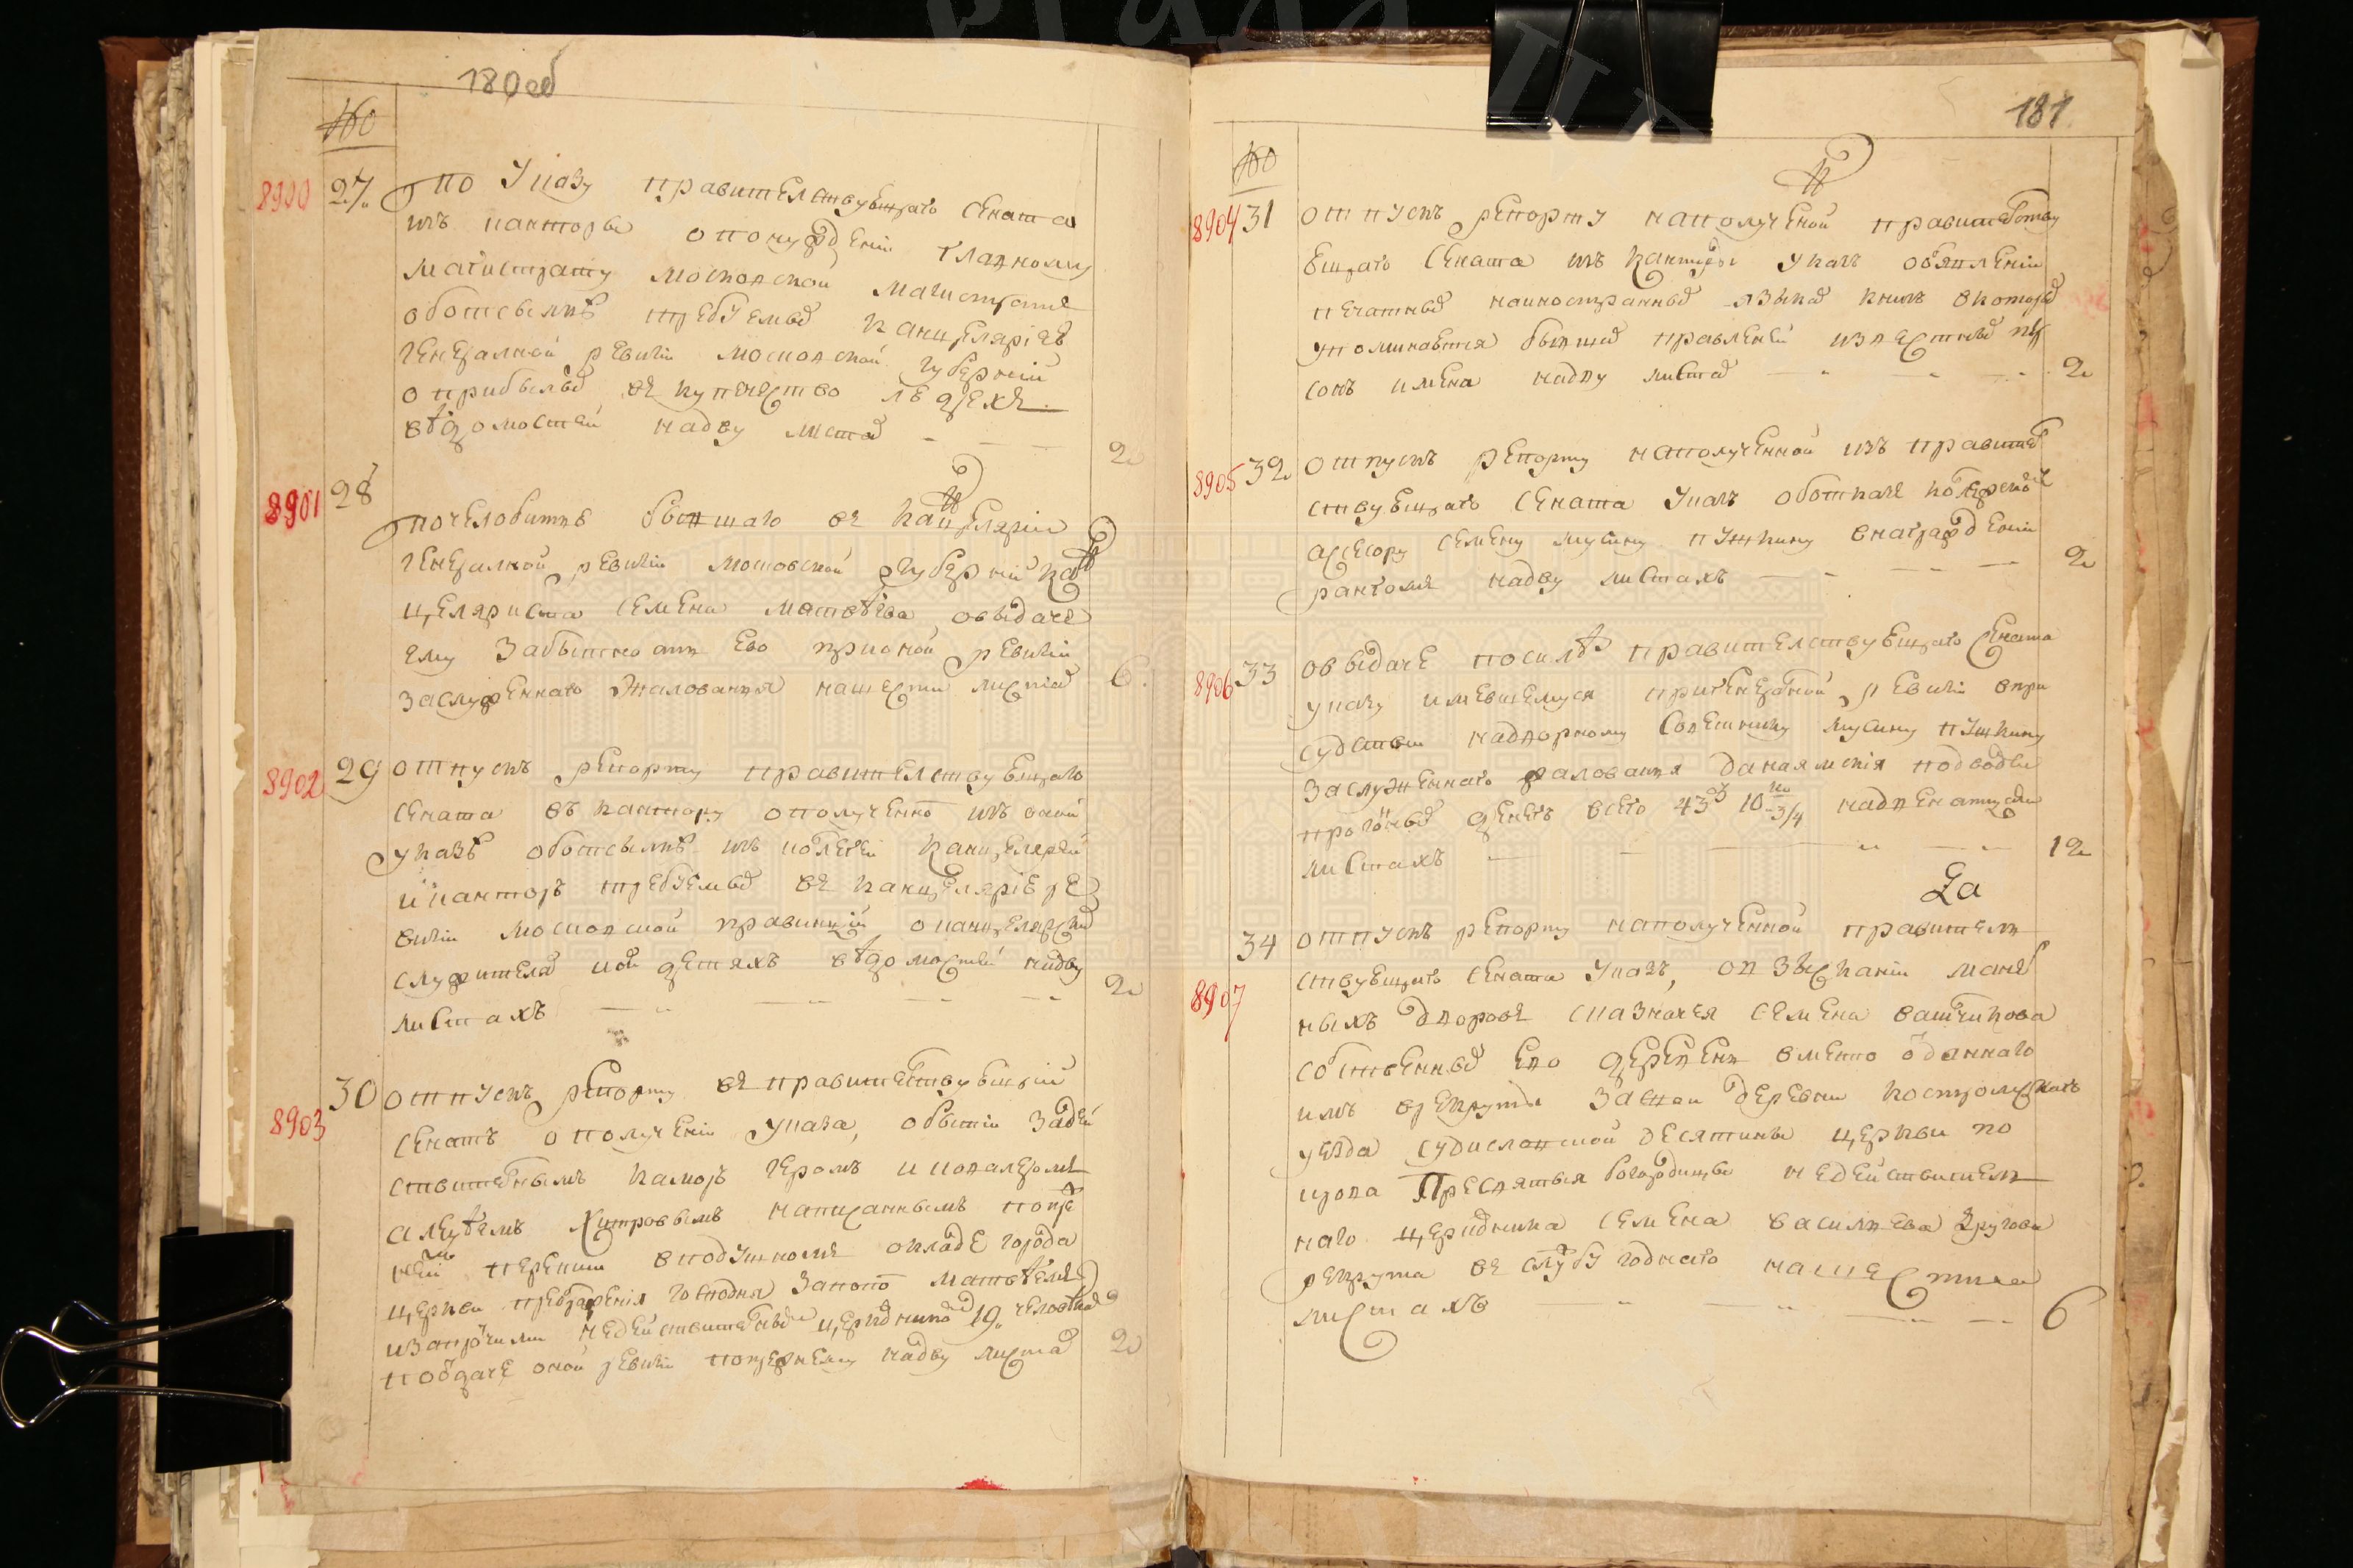 180об
№
8900 27. по указу правителствующаго сената
изъ канторы о понуждении главному
магистрату московской магистратъ
о отсылке требуемыхъ канцелярiею
генералной ревизiи московской губернiи
о прибылыхъ въ купечество людехъ
ведомостей на двухъ листахъ 2
8901 28 по челобитью бывшаго въ канцелярiи
генералной ревизiи московской губернiи кан
целяриста семена матвѣева о выдаче
ему за бытность ево при оной ревизiи
заслуженнаго жалованья на шести листах 6.
8902 29 отпускъ репорту правителствующаго
сената въ кантору о полученiи изъ оной
указе о отсылке изъ колегей канцелярей
и канторъ требуемыхъ въ канцелярiю ре
визiи московской правинцiи о канцелярскихъ
служителях и об детяхъ вѣдомостей на дву
листахъ 2
8903 30 отпускъ репорту въ правителствующiй
сенатъ о полученiи указа, о бытiи за дей
ствителнымъ каморъ геромъ и ковалеромъ
алеѯѣемъ хитровымъ написаннымъ по преж
ней переписи в подушномъ окладе города
церкви преображенiя господня за попомъ матвѣемъ
и за протчими недействителныхъ церковниковъ 19. человѣкъ
по отдаче оной ревизiи по прежнему на дву листах 2
181
№
8904 31 отпускъ репорту на полученой правителству
ющаго сената изъ канторы указъ о обявленiи
печатныхъ на иностранныхъ языках книгъ в которыхъ
упоминаются бывших правленей известныхъ пер
сонъ имена на дву листах 2
8905 32 отпускъ репорту на полученной изъ правител
ствующаго сената указъ о отказе колежскому
ассесору семену мусину пушкину в награжденiи
рангомъ на дву листахъ 2
8906 33 о выдаче по силѣ правителствующаго сената
указу имевшемуся при генералной ревизiи в при
судствии надворному советнику мусину пушкину
заслуженнаго жалованья да на ямскiя подводы
прогонныхъ денегъ всего 43 р 10 ко 3/4 на двенатцати
листахъ 12
34 отпускъ репорту на полученной правитель
8907 ствующаго сената указъ, о взысканiи
ныхъ дворовъ с казначея семена вашчикова
собственныхъ ево деревень вместо отданнаго
имъ в рекруты за свои деревни костромскаго
уезда судиславской десятины церкви по
крова Пресвятыя богородицы недействитель
наго церковника семена васильева другова
рекрута въ службу годнаго на шести
листахъ 6